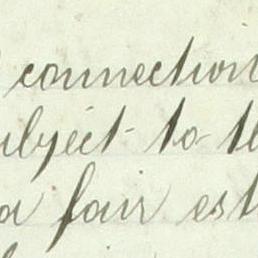 connection
subject to th
a fair est